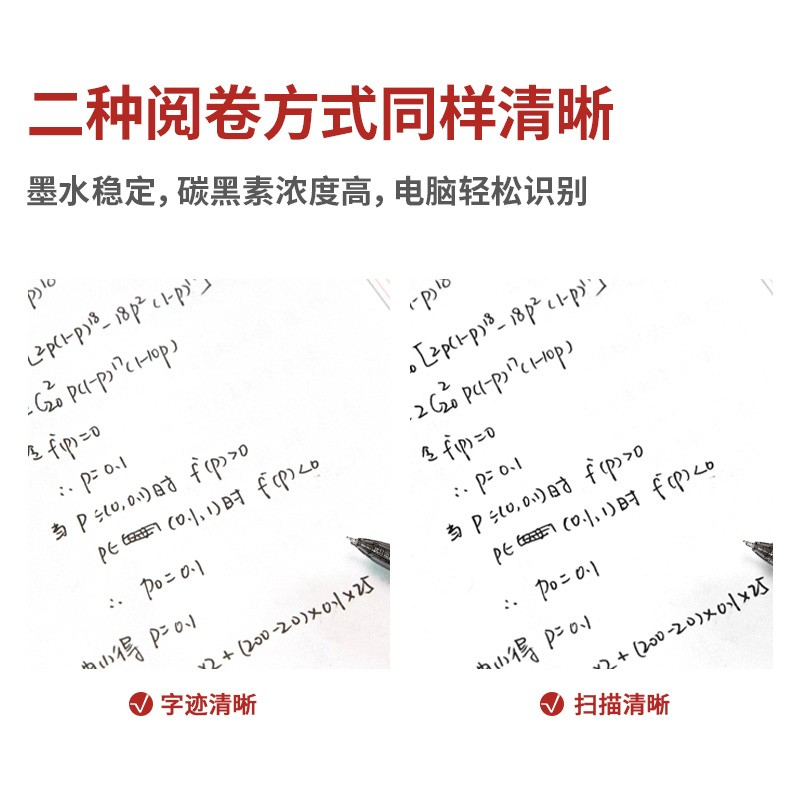 二种阅卷方式同样清晰
墨水稳定，碳黑素浓度高，电脑轻松识别
[2p(1-p)¹⁸-18p²(1-p)¹⁷]
C²₂₀ p(1-p)¹⁷(1-10p)
令 f'(p)=0
∴ p=0.1
当 p∈(0,0.1)时 f'(p)>0
p∈ (0.1,1)时 f'(p)<0
∴ p₀=0.1
得 p=0.1
×2+(200-20)×0.1×25
[2p(1-p)¹⁸-18p²(1-p)¹⁷]
2C²₂₀ p(1-p)¹⁷(1-10p)
令 f'(p)=0
∴ p=0.1
当 p∈(0,0.1)时 f'(p)>0
p∈ (0.1,1)时 f'(p)<0
∴ p₀=0.1
得 p=0.1
×2+(200-20)×0.1×25
字迹清晰
扫描清晰